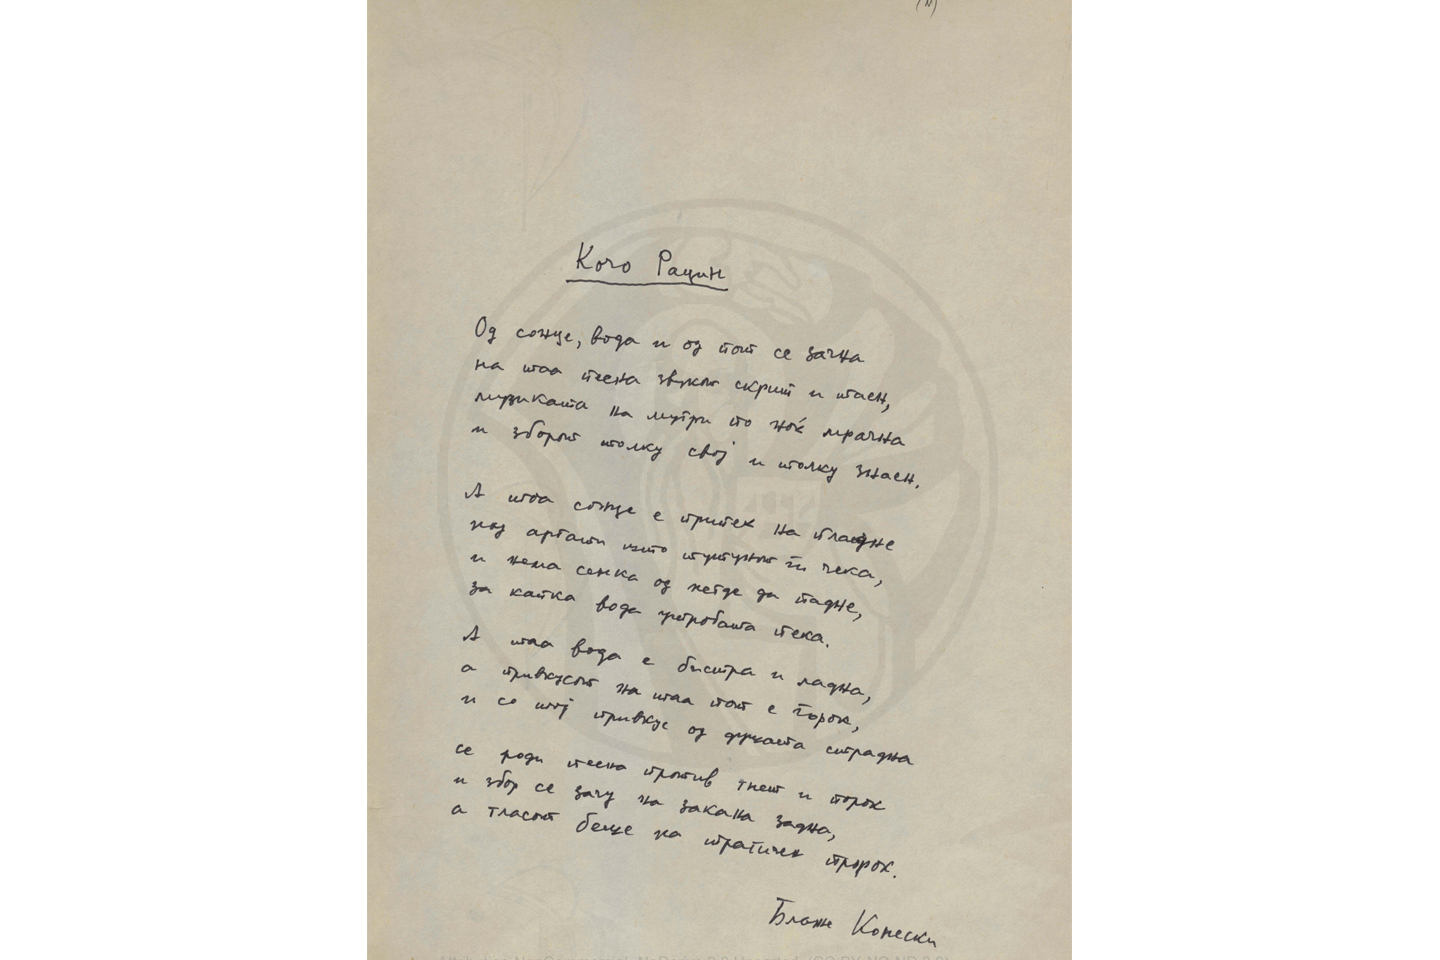 Кочо Рацин
Од сонце, вода и од пот се зачна
на таа песна звукот скрит и таен,
музиката на мугри по ноќ мрачна
и зборот толку свој и толку знаен.
А тоа сонце е припек на пладне
над аргати што тутунот ги чека,
и нема сенка од негде да падне,
за капка вода утробата пека.
А таа вода е бистра и ладна,
а привкусот на таа пот е горок,
и со тој привкус од душата страдна
се роди песна против гнет и порок
и збор се зачу на закана задна,
а гласот беше на трагичен пророк.
Блаже Конески